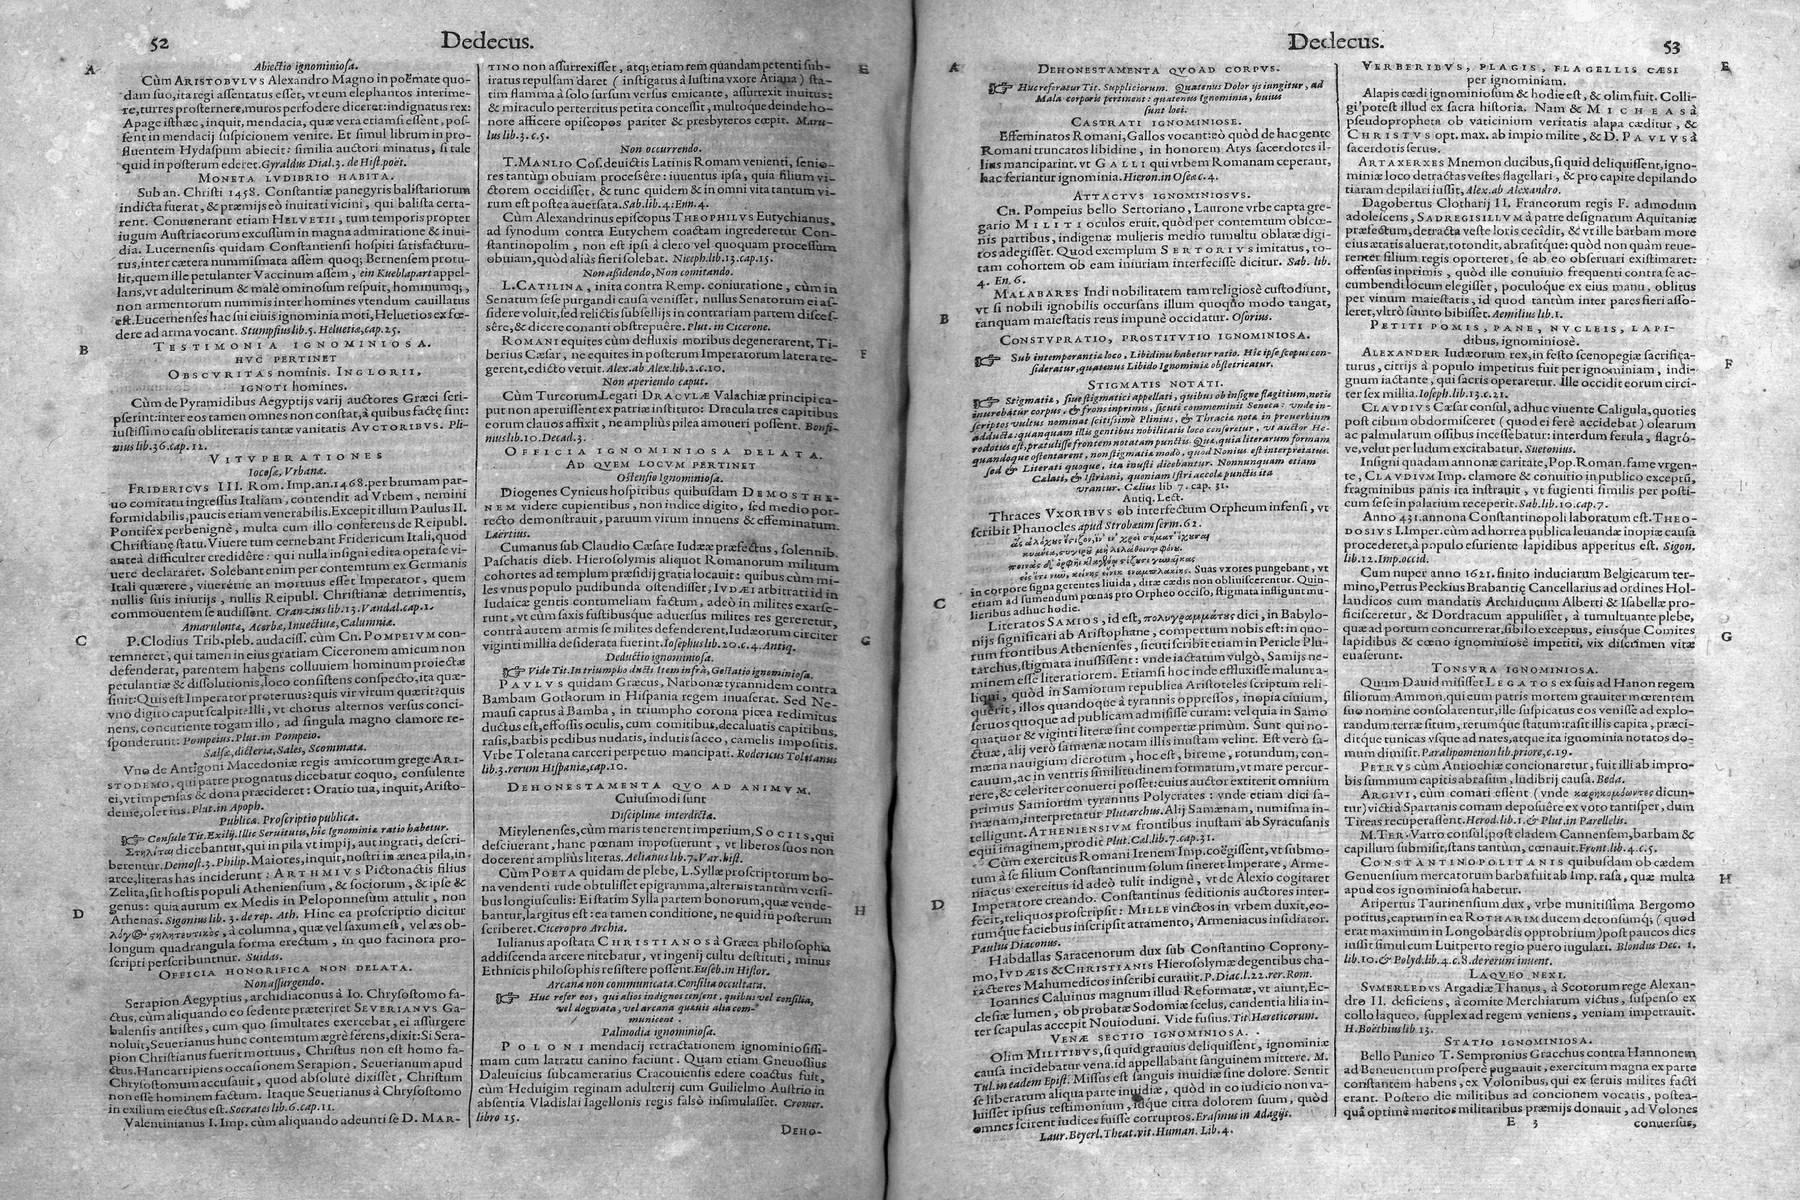 52
Dedecus.
Abiectio ignominiosa.
Cùm ARISTOBVLVS Alexandro Magno in poëmate quo-
dam suo, ita regi assentatus esset, vt eum elephantos interime-
re, turres prosternere, muros perfodere diceret: indignatus rex:
Apage isthæc, inquit, mendacia, quæ vera etiamsi essent, pos-
sent in mendacij suspicionem venire. Et simul librum in pro-
fluentem Hydaspum abiecit: similia auctori minatus, si tale
quid in posterum ederet. Gyraldus Dial. 3. de Hist. poët.
MONETA LVDIBRIO HABITA.
Sub an. Christi 1458. Constantiæ panegyris balistariorum
indicta fuerat, & præmijs eò inuitati vicini, qui balista certa-
rent. Conuenerant etiam HELVETII, tum temporis propter
iugum Austriacorum excussum in magna admiratione & inui-
dia. Lucernensis quidam Constantiensi hospiti satisfacturu-
rus, inter cætera nummismata assem quoq; Bernensem protu-
lit, quem ille petulanter Vaccinum assem, ein Kueblapart appel-
lans, vt adulterinum & malè ominosum respuit, hominumq;,
non armentorum nummis inter homines vtendum cauillatus
est. Lucernenses hac sui eiuis ignominia moti, Heluetios ex fœ-
dere ad arma vocant. Stumpfius lib. 5. Helvetiæ, cap. 25.
TESTIMONIA IGNOMINIOSA.
HVC PERTINET
OBSCVRITAS nominis. INGLORII,
IGNOTI homines.
Cùm de Pyramidibus Aegyptijs varij auctores Græci scri-
pserint: inter eos tamen omnes non constat, à quibus factę sint:
iustissimo casu obliteratis tantæ vanitatis AVCTORIBVS. Pli-
nius lib. 36. cap. 12.
VITVPERATIONES
Iocosæ, Vrbanæ.
FRIDERICVS III. Rom. Imp. an. 1468. per brumam par-
uo comitatu ingressus Italiam, contendit ad Vrbem, nemini
formidabilis, paucis etiam venerabilis. Excepit illum Paulus II.
Pontifex perbenignè, multa cum illo conferens de Reipubl.
Christianę statu. Viuere tum cernebant Fridericum Itali, quod
anteà difficulter credidêre: qui nulla insigni edita opera se vi-
uere declararet. Solebant enim per contemtum ex Germanis
Itali quærere, viueretne an mortuus esset Imperator, quem
nullis suis iniurijs, nullis Reipubl. Christianæ detrimentis,
commouentem se audissent. Cranzius lib. 13. Vandal. cap. 1.
Amarulentæ, Acerbæ, Inuectiuæ, Calumniæ.
P. Clodius Trib. pleb. audaciss. cùm Cn. POMPEIVM con-
temneret, qui tamen in eius gratiam Ciceronem amicum non
defenderat, parentem habens colluuiem hominum proiectæ
petulantiæ & dissolutionis, loco consistens conspecto, ita quæ-
siuit: Quis est Imperator proteruus? quis vir virum quærit? quis
vno digito caput scalpit? Illi, vt chorus alternos versus conci-
nens, concutiente togam illo, ad singula magno clamore re-
sponderunt: Pompeius. Plut. in Pompeio.
Salsæ, dicteria, Sales, Scommata.
Vno de Antigoni Macedoniæ regis amicorum grege ARI-
STODEMO, qui patre prognatus dicebatur coquo, consulente
ei, vt impensas & dona præcideret: Oratio tua, inquit, Aristo-
deme, olet ius. Plut. in Apoph.
Publica. Proscriptio publica.
☞ Consule Tit. Exilij. Illic Seruitutis, hic Ignominiæ ratio habetur.
Στηλίται dicebantur, qui in pila vt impij, aut ingrati, descri-
bebantur. Demost. 3. Philip. Maiores, inquit, nostri in ænea pila, in
arce, literas has inciderunt: ARTHMIVS Pictonactis filius
Zelita, sit hostis populi Atheniensium, & sociorum, & ipse &
genus: quia aurum ex Medis in Peloponnesum attulit, non
Athenas. Sigonius lib. 3. de rep. Ath. Hinc ea proscriptio dicitur
λόγος στηλητευτικὸς, à columna, quæ vel saxum est, vel æs ob-
longum quadrangula forma erectum, in quo facinora pro-
scripti perscribuntur. Suidas.
OFFICIA HONORIFICA NON DELATA.
Non assurgendo.
Serapion Aegyptius, archidiaconus à Io. Chrysostomo fa-
ctus, cùm aliquando eo sedente præteriret SEVERIANVS Ga-
balensis antistes, cum quo simultates exercebat, ei assurgere
noluit, Seuerianus hunc contemtum ægrè ferens, dixit: Si Sera-
pion Christianus fuerit mortuus, Christus non est homo fa-
ctus. Hanc arripiens occasionem Serapion. Seuerianum apud
Chrysostomum accusauit, quod absolutè dixisset, Christum
non esse hominem factum. Itaque Seuerianus à Chrysostomo
in exilium eiectus est. Socrates lib. 6. cap. 11.
Valentinianus I. Imp. cùm aliquando adeunti se D. MAR-
TINO non assurrexisset, atq; etiam rem quandam petenti sub-
iratus repulsam daret (instigatus à Iustina vxore Ariana) sta-
tim flamma à solo sursum versus emicante, assurrexit inuitus:
& miraculo perterritus petita concessit, multoque deinde ho-
nore afficere episcopos pariter & presbyteros cœpit. Maru-
lus lib. 3. c. 5.
Non occurrendo.
T. MANLIO Cos. deuictis Latinis Romam venienti, senio-
res tantùm obuiam processêre: iuuentus ipsa, quia filium vi-
ctorem occidisset, & tunc quidem & in omni vita tantum vi-
rum est postea auersata. Sab. lib. 4. Enn. 4.
Cùm Alexandrinus episcopus THEOPHILVS Eutychianus,
ad synodum contra Eutychem coactam ingrederetur Con-
stantinopolim, non est ipsi à clero vel quoquam processum
obuiam, quòd aliàs fieri solebat. Niceph. lib. 13. cap. 15.
Non assidendo, Non comitando.
L. CATILINA, inita contra Remp. coniuratione, cùm in
Senatum sese purgandi causa venisset, nullus Senatorum ei as-
sidere voluit, sed relictis subsellijs in contrariam partem disces-
sêre, & dicere conanti obstrepuêre. Plut. in Cicerone.
ROMANI equites cùm defluxis moribus degenerarent, Ti-
berius Cæsar, ne equites in posterum Imperatorum latera te-
gerent, edicto vetuit. Alex. ab Alex. lib. 2. c. 10.
Non aperiendo caput.
Cùm Turcorum Legati DRACVLÆ Valachiæ principi ca-
put non aperuissent ex patriæ instituto: Dracula tres capitibus
eorum clauos affixit, ne ampliùs pilea amoueri possent. Bonfi-
nius lib. 10. Decad. 3.
OFFICIA IGNOMINIOSA DELATA.
AD QVEM LOCVM PERTINET
Ostensio Ignominiosa.
Diogenes Cynicus hospitibus quibusdam DEMOSTHE-
NEM videre cupientibus, non indice digito, sed medio por-
recto demonstrauit, paruum virum innuens & effeminatum.
Laërtius.
Cumanus sub Claudio Cæsare Iudææ præfectus, solennib.
Paschatis dieb. Hierosolymis aliquot Romanorum militum
cohortes ad templum præsidij gratia locauit: quibus cùm mi-
les vnus populo pudibunda ostendisset, IVDÆI arbitrati id in
Iudaicæ gentis contumeliam factum, adeò in milites exarse-
runt, vt cùm saxis fustibusque aduersus milites res gereretur,
contrà autem armis se milites defenderent, Iudæorum circiter
viginti millia desiderata fuerint. Iosephus lib. 20. c. 4. Antiq.
Deductio ignominiosa.
☞ Vide Tit. In triumpho ducti. Item infrà, Gestatio ignominiosa.
PAVLVS quidam Græcus, Narbonæ tyrannidem contra
Bambam Gothorum in Hispania regem inuaserat. Sed Ne-
mausi captus à Bamba, in triumpho corona picea redimitus
ductus est, effossis oculis, cum comitibus, decaluatis capitibus,
rasis, barbis pedibus nudatis, indutis sacco, camelis impositis.
Vrbe Toletana carceri perpetuo mancipati. Rodericus Toletanus
lib. 3. rerum Hispaniæ, cap. 10.
DEHONESTAMENTA QVO AD ANIMVM.
Cuiusmodi sunt
Disciplinæ interdictæ.
Mitylenenses, cùm maris tenerent imperium, SOCIIS, qui
desciuerant, hanc pœnam imposuerunt, vt liberos suos non
docerent ampliùs literas. Aelianus lib. 7. Var. hist.
Cùm POETA quidam de plebe, L. Syllæ proscriptorum bo-
na vendenti rude obtulisset epigramma, alternis tantùm versi-
bus longiusculis: Ei statim Sylla partem bonorum, quæ vende-
bantur, largitus est: ea tamen conditione, ne quid in posterum
scriberet. Cicero pro Archia.
Iulianus apostata CHRISTIANOS à Græca philosophia
addiscenda arcere nitebatur, vt ingenij cultu destituti, minus
Ethnicis philosophis resistere possent. Euseb. in Histor.
Arcana non communicata. Consilia occultata.
☞ Huc refer eos, qui alios indignos censent, quibus vel consilia,
vel dogmata, vel arcana quæuis alia com-
municent.
Palinodia ignominiosa.
POLONI mendacij retractationem ignominiosissi-
mam cum latratu canino faciunt. Quam etiam Gneuossius
Daleuicius subcamerarius Cracouiensis edere coactus fuit,
cùm Heduigim reginam adulterij cum Guilielmo Austrio in
absentia Vladislai Iagellonis regis falsò insimulasset. Cromer.
libro 15.
DEHO-
A
B
C
D
E
F
G
H
Dedecus.
53
DEHONESTAMENTA QVOAD CORPVS.
☞ Huc referatur Tit. Suppliciorum. Quatenus Dolor ijs iungitur, ad
Mala corporis pertinent: quatenus Ignominia, huius
sunt loci.
CASTRATI IGNOMINIOSE.
Effeminatos Romani, Gallos vocant: eò quòd de hac gente
Romani truncatos libidine, in honorem Atys sacerdotes il-
lius manciparint. vt GALLI qui vrbem Romanam ceperant,
hac feriantur ignominia. Hieron. in Oseæ c. 4.
ATTACTVS IGNOMINIOSVS.
Cn. Pompeius bello Sertoriano, Laurone vrbe capta gre-
gario MILITI oculos eruit, quòd per contemtum obscœ-
nis partibus, indigenæ mulieris medio tumultu oblatæ digi-
tos adegisset. Quod exemplum SERTORIVS imitatus, to-
tam cohortem ob eam iniuriam interfecisse dicitur. Sab. lib.
4. En. 6.
MALABARES Indi nobilitatem tam religiosè custodiunt,
vt si nobili ignobilis occursans illum quoquo modo tangat,
tanquam maiestatis reus impunè occidatur. Osorius.
CONSTVPRATIO, PROSTITVTIO IGNOMINIOSA.
☞ Sub intemperantiæ loco, Libidinis habetur ratio. Hic ipse scopus con-
sideratur, quatenus Libido Ignominiæ obstetricatur.
STIGMATIS NOTATI.
☞ Stigmatiæ, siue stigmatici appellati, quibus ob insigne flagitium, notis
inurebatur corpus, & frons inprimis, sicuti commeminit Seneca: vnde in-
scriptos vultus nominat scitissimè Plinius, & Thracia nota in prouerbium
adducta: quanquam illis gentibus nobilitatis loco censeretur, vt auctor He-
rodotus est, prætulisse frontem notatam punctis. Quæ, quia literarum formam
quandoque ostentarent, non stigmatiæ modò, quod Nonius est interpretatus,
sed & Literati quoque, ita inusti dicebantur. Nonnunquam etiam
Cælati, & Istriani, quoniam Istri accolæ punctis ita
vrantur. Cælius lib. 7. cap. 31.
Antiq. Lect.
Thraces VXORIBVS ob interfectum Orpheum infensi, vt
scribit Phanocles apud Strobæum serm. 62.
Suas vxores pungebant, vt
in corpore signa gerentes liuida, diræ cædis non obliuiscerentur. Quin-
etiam ad sumendum pœnas pro Orpheo occiso, stigmata infligunt mu-
lieribus adhuc hodie.
Literatos SAMIOS, id est, πολυγραμμάτους dici, in Babylo-
nijs significari ab Aristophane, compertum nobis est: in quo-
rum frontibus Athenienses, sicuti scribit etiam in Pericle Plu-
tarchus, stigmata inussissent: vnde iactatum vulgò, Samijs ne-
minem esse literatiorem. Etiamsi hoc inde effluxisse malunt a-
liqui, quòd in Samiorum republica Aristoteles scriptum reli-
querit, illos quandoque à tyrannis oppressos, inopia ciuium,
seruos quoque ad publicam admisisse curam: vel quia in Samo
quatuor & viginti literæ sint compertæ primùm. Sunt qui no-
ctuæ, alij verò samænæ notam illis inustam velint. Est verò sa-
mæna nauigium dicrotum, hoc est, bireme, rotundum, con-
cauum, ac in ventris similitudinem formatum, vt mare percur-
rere, & celeriter conuerti posset: cuius auctor extiterit omnium
primus Samiorum tyrannus Polycrates: vnde etiam dici sa-
mænam, interpretatur Plutarchus. Alij Samænam, numisma in-
telligunt. ATHENIENSIVM frontibus inustam ab Syracusanis
equi imaginem, prodit Plut. Cæl. lib. 7. cap. 31.
Cùm exercitus Romani Irenem Imp. coëgissent, vt submo-
tum à se filium Constantinum solum sineret Imperare, Arme-
niacus exercitus id adeò tulit indignè, vt de Alexio cogitaret
Imperatore creando. Constantinus seditionis auctores inter-
fecit, reliquos proscripsit: MILLE vinctos in vrbem duxit, eo-
rumque faciebus inscripsit atramento, Armeniacus insidiator.
Paulus Diaconus.
Habdallas Saracenorum dux sub Constantino Coprony-
mo, IVDÆIS & CHRISTIANIS Hierosolymæ degentibus cha-
racteres Mahumedicos inscribi curauit. P. Diac. l. 22. rer. Rom.
Ioannes Caluinus magnum illud Reformatæ, vt aiunt, Ec-
clesiæ lumen, ob probatæ Sodomiæ scelus, candentia lilia in-
ter scapulas accepit Nouioduni. Vide fusius. Tit. Hæreticorum.
VENÆ SECTIO IGNOMINIOSA.
Olim MILITIBVS, si quid grauius deliquissent, ignominiæ
causa incidebatur vena. id appellabant sanguinem mittere. M.
Tul. in eadem Epist. Missus est sanguis inuidiæ sine dolore. Sentit
se liberatum aliqua parte inuidiæ, quòd in eo iudicio non va-
luisset ipsius testimonium, idque citra dolorem suum, quòd
omnes scirent iudices fuisse corruptos. Erasmus in Adagijs.
Laur. Beyerl. Theat. vit. Human. Lib. 4.
VERBERIBVS, PLAGIS, FLAGELLIS CÆSI
per ignominiam.
Alapis cædi ignominiosum & hodie est, & olim fuit. Colli-
gi potest illud ex sacra historia. Nam & MICHEAS à
pseudopropheta ob vaticinium veritatis alapa cæditur, &
CHRISTVS opt. max. ab impio milite, & D. PAVLVS à
sacerdotis seruo.
ARTAXERXES Mnemon ducibus, si quid deliquissent, igno-
miniæ loco detractas vestes flagellari, & pro capite depilando
tiaram depilari iussit, Alex. ab Alexandro.
Dagobertus Clotharij II. Francorum regis F. admodum
adolescens, SADREGISILLVM à patre designatum Aquitaniæ
præfectum, detracta veste loris cecidit, & vt ille barbam more
eius ætatis aluerat, totondit, abrasitque: quòd non quàm reue-
renter filium regis oporteret, se ab eo obseruari existimaret:
offensus inprimis, quòd ille conuiuio frequenti contra se ac-
cumbendi locum elegisset, poculoque ex eius manu, oblitus
per vinum maiestatis, id quod tantùm inter pares fieri asso-
leret, vltrò sumto bibisset. Aemilius lib. 1.
PETITI POMIS, PANE, NVCLEIS, LAPI-
dibus, ignominiosè.
ALEXANDER Iudæorum rex, in festo scenopegiæ sacrifica-
turus, citrijs à populo impetitus fuit per ignominiam, indi-
gnum iactante, qui sacris operaretur. Ille occidit eorum circi-
ter sex millia. Ioseph. lib. 13. c. 21.
CLAVDIVS Cæsar consul, adhuc viuente Caligula, quoties
post cibum obdormisceret (quod ei ferè accidebat) olearum
ac palmularum ossibus incessebatur: interdum ferula, flagró-
ve, velut per ludum excitabatur. Suetonius.
Insigni quadam annonæ caritate, Pop. Roman. fame vrgen-
te, CLAVDIVM Imp. clamore & conuitio in publico exceptū,
fragminibus panis ita instrauit, vt fugienti similis per posti-
cum sese in palatium reciperet. Sab. lib. 10. cap. 7.
Anno 431. annona Constantinopoli laboratum est. THEO-
DOSIVS I. Imper. cùm ad horrea publica leuandæ inopiæ causa
procederet, à populo esuriente lapidibus appetitus est. Sigon.
lib. 12. Imp. occid.
Cùm nuper anno 1621. finito induciarum Belgicarum ter-
mino, Petrus Peckius Brabantię Cancellarius ad ordines Hol-
landicos cum mandatis Archiducum Alberti & Isabellæ pro-
ficisceretur, & Dordracum appulisset, à tumultuante plebe,
quæ ad portum concurrerat, sibilo exceptus, eiusque Comites
lapidibus & cœno ignominiosè impetiti, vix discrimen vitæ
euaserunt.
TONSVRA IGNOMINIOSA.
Quum Dauid misisset LEGATOS ex suis ad Hanon regem
filiorum Ammon, qui eum patris mortem grauiter mœrentem
suo nomine consolarentur, ille suspicatus eos venisse ad explo-
randum terræ situm, rerumque statum: rasit illis capita, præci-
ditque tunicas vsque ad nates, atque ita ignominia notatos do-
mum dimisit. Paralipomenon lib. priore, c. 19.
PETRVS cùm Antiochiæ concionaretur, fuit illi ab impro-
bis summum capitis abrasum, ludibrij causa. Beda.
ARGIVI, cùm comati essent (vnde καρηκομόωντες dicun-
tur) victi à Spartanis comam deposuêre ex voto tantisper, dum
Tireas recuperassent. Herod. lib. 1. & Plut. in Parellelis.
M. TER. Varro consul, post cladem Cannensem, barbam &
capillum submisit, stans tantùm, cœnauit. Front. lib. 4. c. 5.
CONSTANTINOPOLITANIS quibusdam ob cædem
Genuensium mercatorum barba fuit ab Imp. rasa, quæ multa
apud eos ignominiosa habetur.
Aripertus Taurinensium dux, vrbe munitissima Bergomo
potitus, captum in ea ROTHARIM ducem detonsumq; (quod
erat maximum in Longobardis opprobrium) post paucos dies
iussit simul cum Luitperto regio puero iugulari. Blondus Dec. 1.
lib. 10. & Polyd. lib. 4. c. 8. de rerum inuent.
LAQVEO NEXI.
SVMERLEDVS Argadiæ Thanus, à Scotorum rege Alexan-
dro II. deficiens, à comite Merchiarum victus, suspenso ex
collo laqueo, supplex ad regem veniens, veniam impetrauit.
H. Boëthius lib 13.
STATIO IGNOMINIOSA.
Bello Punico T. Sempronius Gracchus contra Hannonem
ad Beneuentum prosperè pugnauit, exercitum magna ex parte
constantem habens, ex Volonibus, qui ex seruis milites facti
erant. Postero die militibus ad concionem vocatis, postea-
quâ optimè meritos militaribus præmijs donauit, ad Volones
E 3
conuersus,
A
B
C
D
E
F
G
H